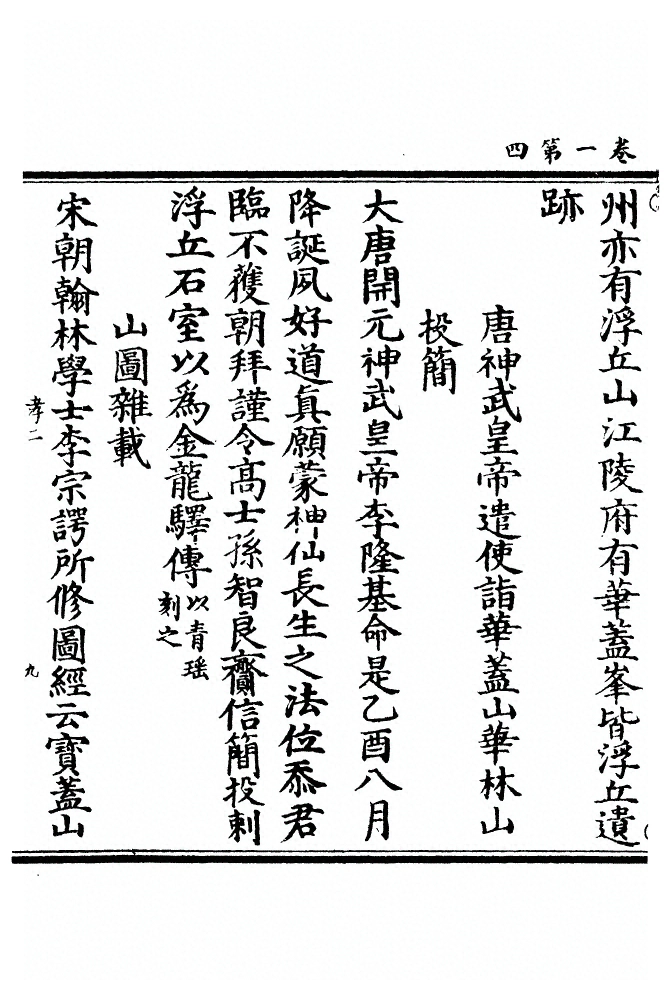 卷一第四
州亦有浮丘山江陵府有華蓋峯皆浮丘遺
跡
唐神武皇帝遣使詣華蓋山華林山
投簡
大唐開元神武皇帝李隆基命是乙酉八月
降誕夙好道真願蒙神仙長生之法位忝君
臨不獲朝拜謹令高士孫智良齎信簡投刺
浮丘石室以爲金龍驛傳以青瑶
刻之
山圖雜載
宋朝翰林學士李宗諤所修圖經云寶蓋山
孝二
九